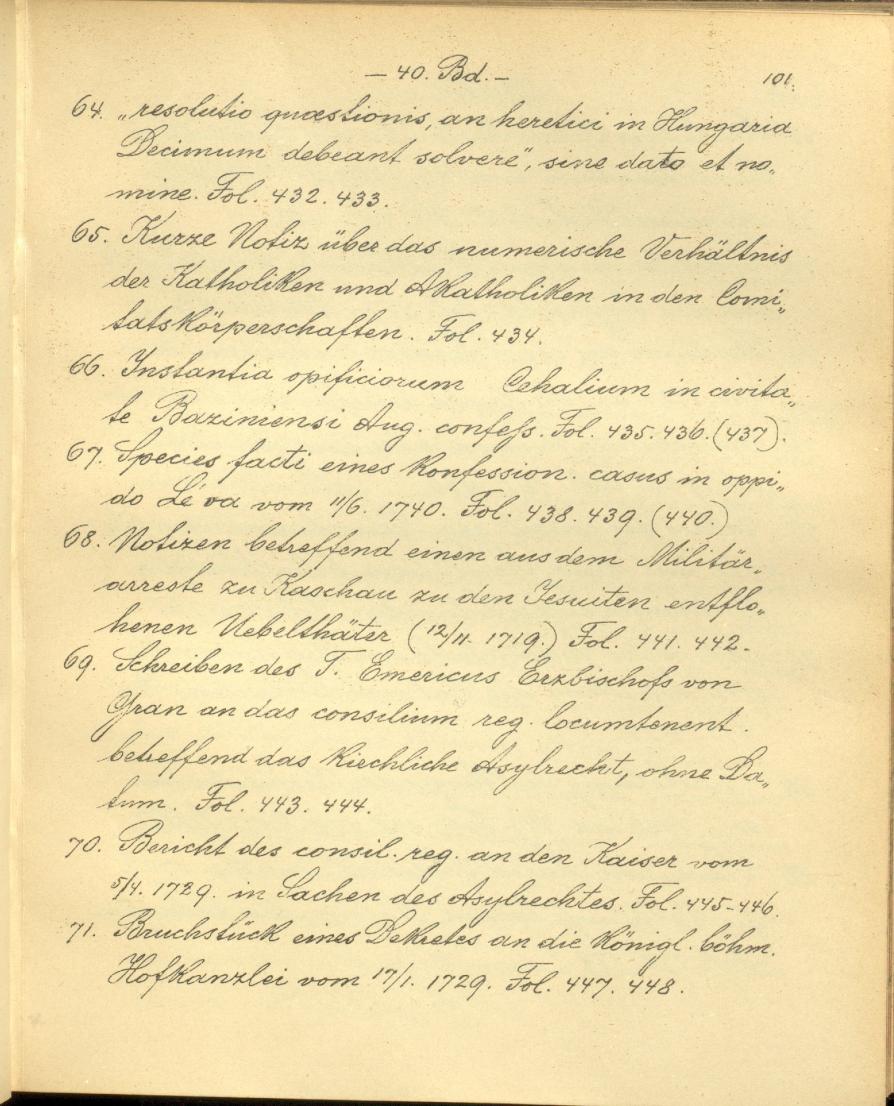 — 40. Bd. — 101.
64. „resolutio quæstionis, an heretici in Hungaria
Decimum debeant solvere", sine dato et no„
mine. Fol. 432. 433.
65. Kurze Notiz über das numerische Verhältnis
der Katholiken und Akatholiken in den Comi„
tatskörperschaften. Fol. 434.
66. Instantia opificiorum Cehalium in civita„
te Baziniensi Aug. confess. Fol. 435. 436. (437).
67. Species facti eines Konfession. casus in oppi„
do Léva vom 11/6. 1740. Fol. 438. 439. (440.)
68. Notizen betreffend einen aus dem Militär„
arreste zu Kaschau zu den Jesuiten entflo„
henen Uebelthäter (12/11. 1719.) Fol. 441. 442.
69. Schreiben des T. Emericus Erzbischofs von
Gran an das consilium reg. locumtenent.
betreffend das kirchliche Asylrecht, ohne Da„
tum. Fol. 443. 444.
70. Bericht des consil. reg. an den Kaiser vom
5/4. 1729. in Sachen des Asylrechtes. Fol. 445-446.
71. Bruchstück eines Dekretes an die königl. böhm.
Hofkanzlei vom 17/1. 1729. Fol. 447. 448.